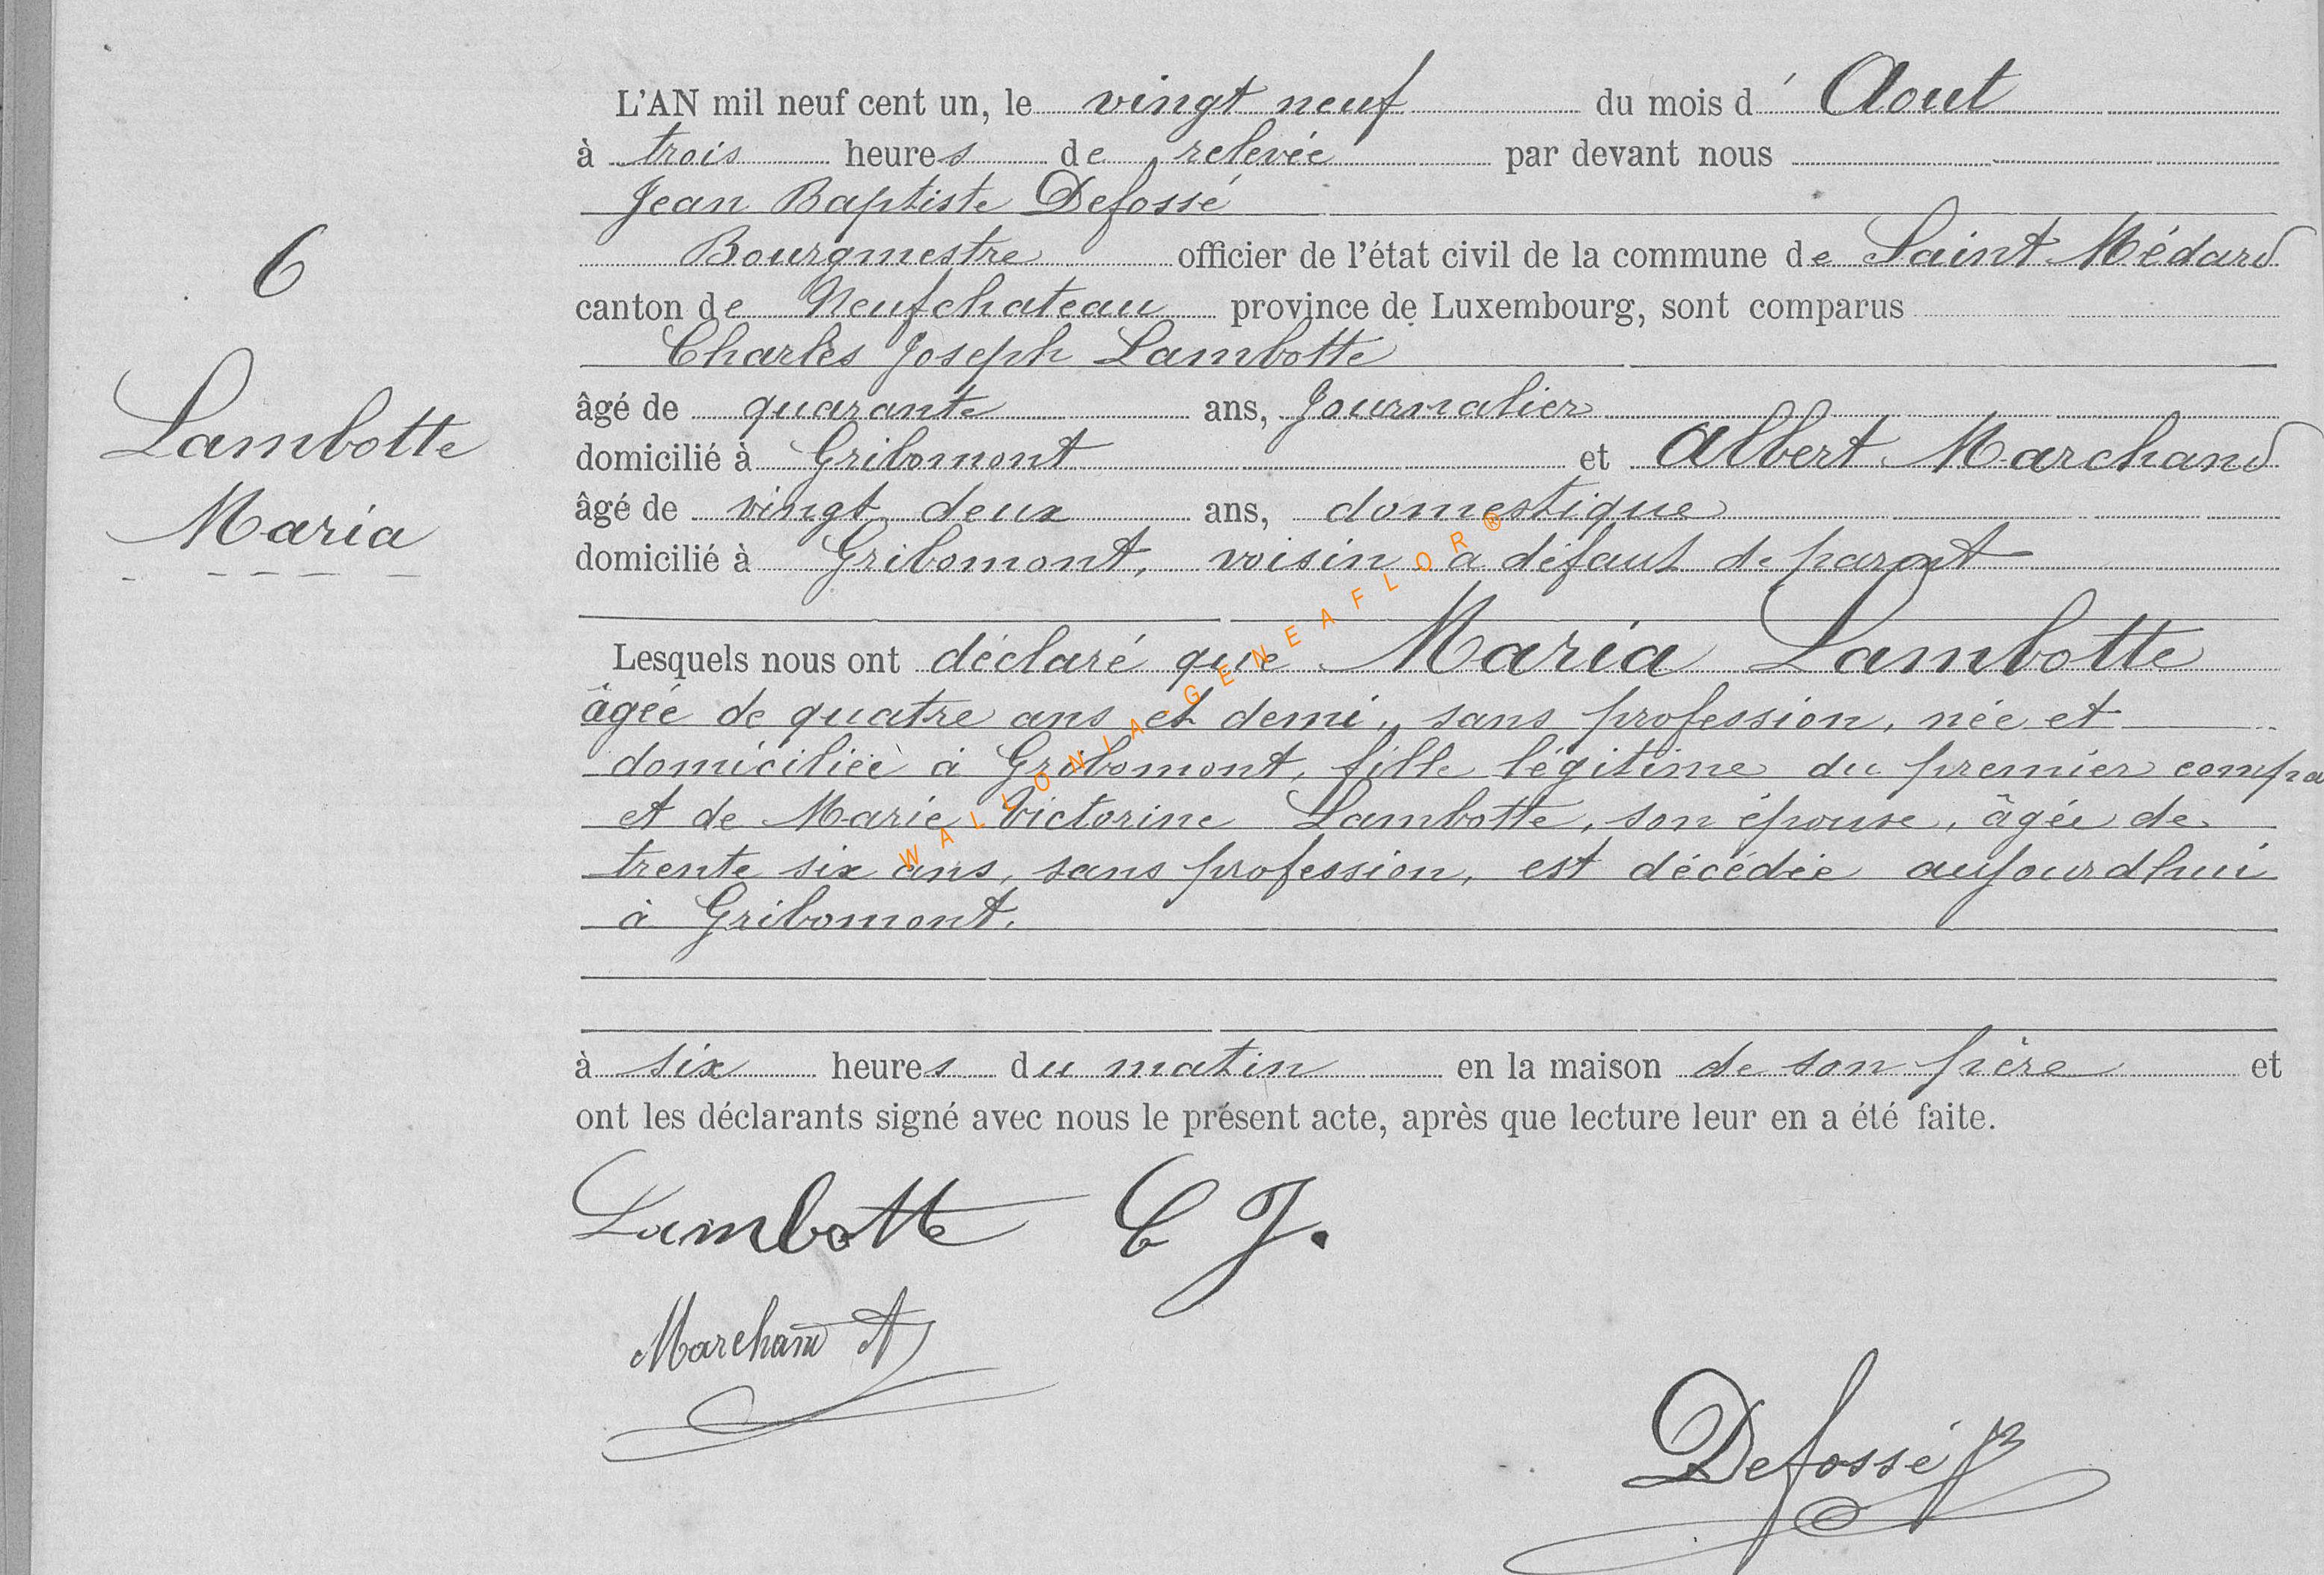 6
Lambotte
Maria
L'AN mil neuf cent un, le vingt neuf du mois d' Aout
à trois heures de relevée par devant nous
Jean Baptiste Defossé
Bourgmestre officier de l'état civil de la commune de Saint Médard
canton de Neufchateau province de Luxembourg, sont comparus
Charles Joseph Lambotte
âgé de quarante ans, Journalier
domicilié à Gribomont et Albert Marchand
âgé de vingt deux ans, domestique
domicilié à Gribomont, voisin à défaut de parent
Lesquels nous ont déclaré que Maria Lambotte
âgée de quatre ans et demi, sans profession, née et
domiciliée à Gribomont, fille légitime du premier compa
et de Marie Victorine Lambotte, son épouse, âgée de
trente six ans, sans profession, est décédée aujourdhui
à Gribomont.
à six heures du matin en la maison de son père et
ont les déclarants signé avec nous le présent acte, après que lecture leur en a été faite.
Lambotte C J.
Marchand A
Defossé JB
WALLONIA-GENEAFLOR®